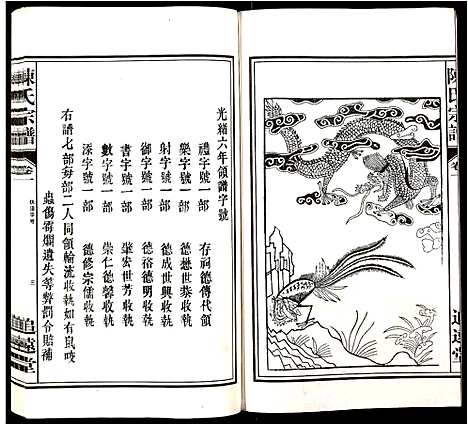 陳氏宗譜
卷一
追遠堂
光緒六年領譜字號
禮字號一部 存祠德傳代領
樂字號一部 德懋世葵收執
射字號一部 德成世興收執
御字號一部 德裕德明收執
書字號一部 肇宏世芳收執
數字號一部 崇仁德馨收執
添字號一部 德修宗儒收執
右譜七部每部二人同領輪流收執如有鼠咬
蟲傷霉爛遺失等弊罰令賠補
陳氏宗譜
卷
領譜字號
三
追遠堂